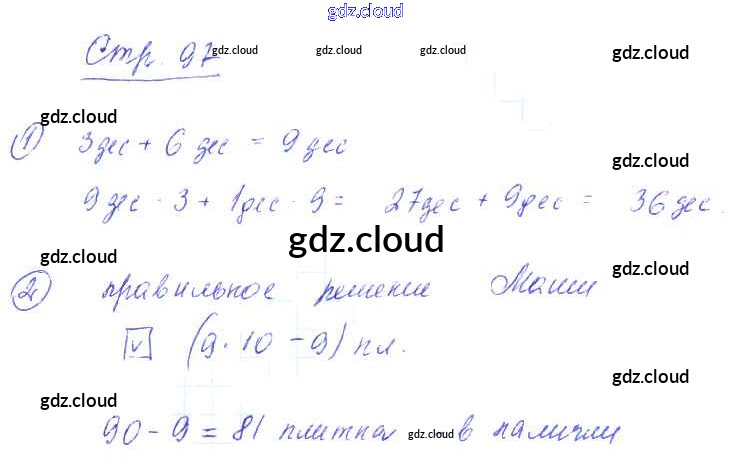 gdz.cloud
Стр. 97 gdz.cloud gdz.cloud gdz.cloud gdz.cloud
gdz.cloud
① 3 дес + 6 дес = 9 дес
gdz.cloud
9 дес · 3 + 1 дес · 9 = 27 дес + 9 дес = 36 дес.
gdz.cloud
gdz.cloud gdz.cloud
② правильное решение Маши
v (9 · 10 - 9) пл.
gdz.cloud
gdz.cloud
90 - 9 = 81 плитка gdz.cloud в наличии